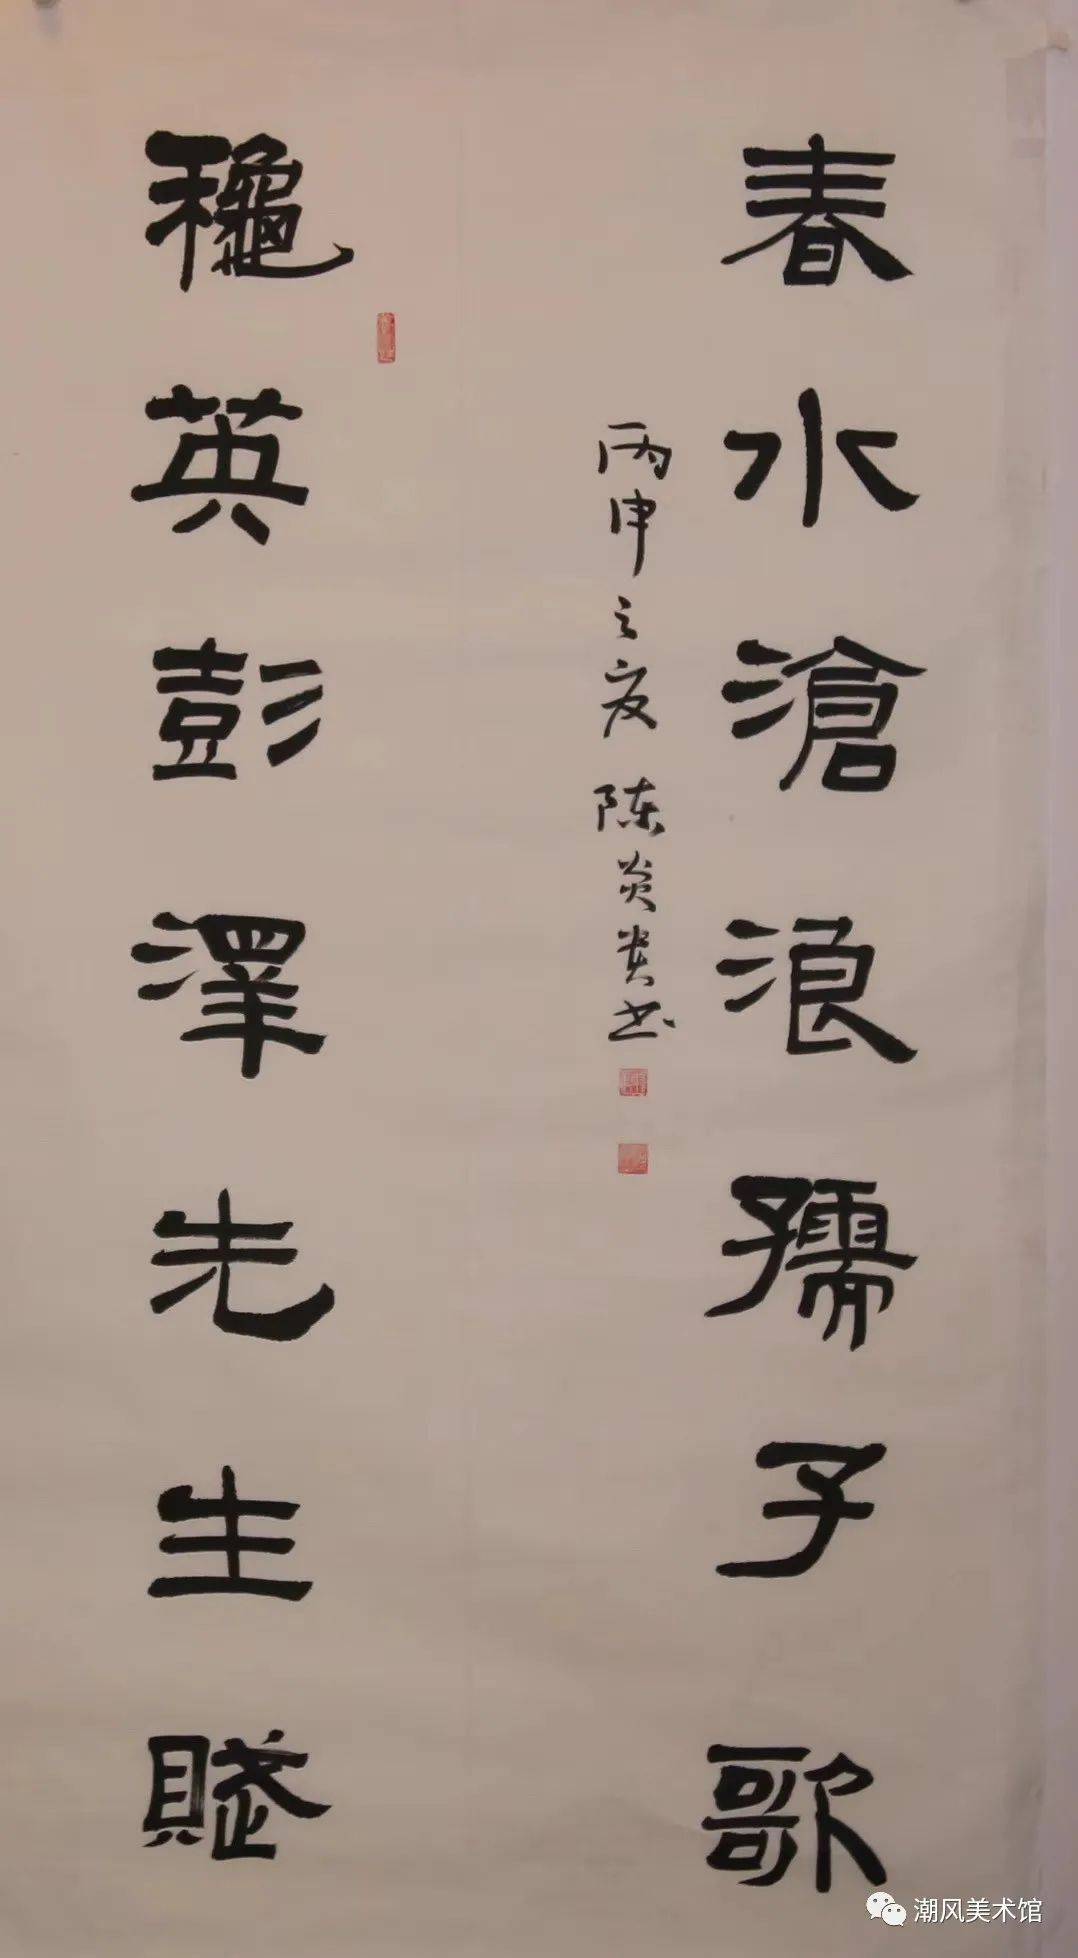 春水滄浪孺子歌
丙申之夏 陈炎贵书
龝英彭澤先生賦
潮风美术馆